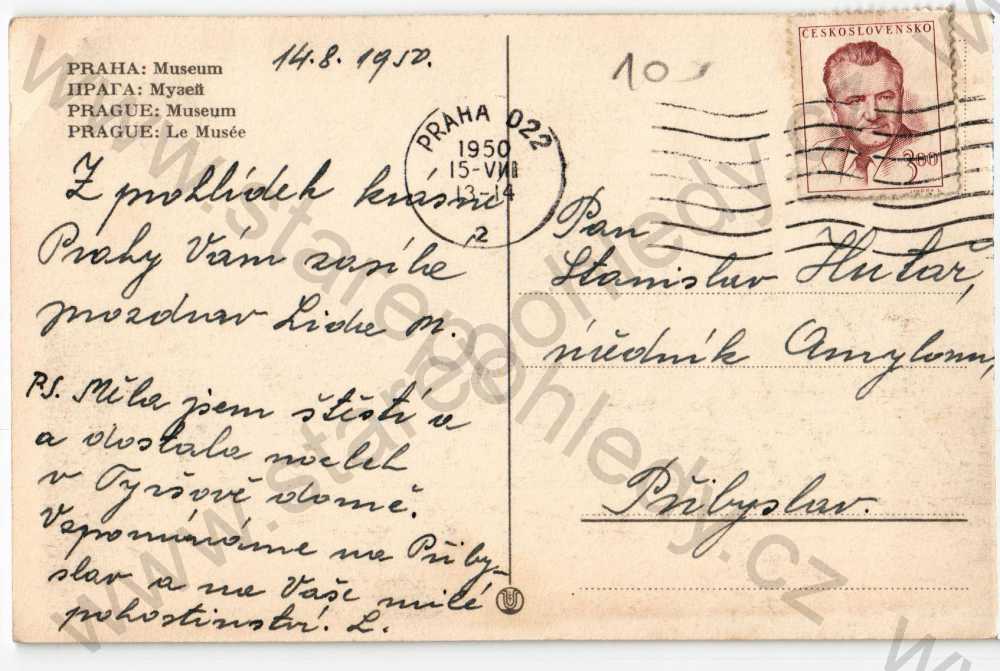 PRAHA: Museum
ПРАГА: Музей
PRAGUE: Museum
PRAGUE: Le Musée
14.8.1950.
Z prohlídek krásné
Prahy Vám zasílá
pozdrav Lida M.
P.S. Měla jsem štěstí a
a dostala nocleh
v Tyršově domě.
Vzpomínáme na Přiby-
slav a na Vaše milé
pohostinství. L.
PRAHA 022
1950
15-VIII
13-14
2
10
ČESKOSLOVENSKO
3.00
Pan
Stanislav Hutař,
úředník Amylonu,
Přibyslav.
www.starepohledy.cz
www.starepohledy.cz